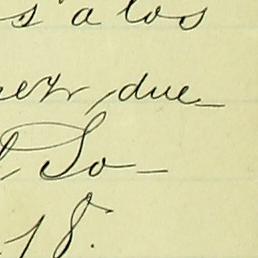 s a los
due-
So-
18.